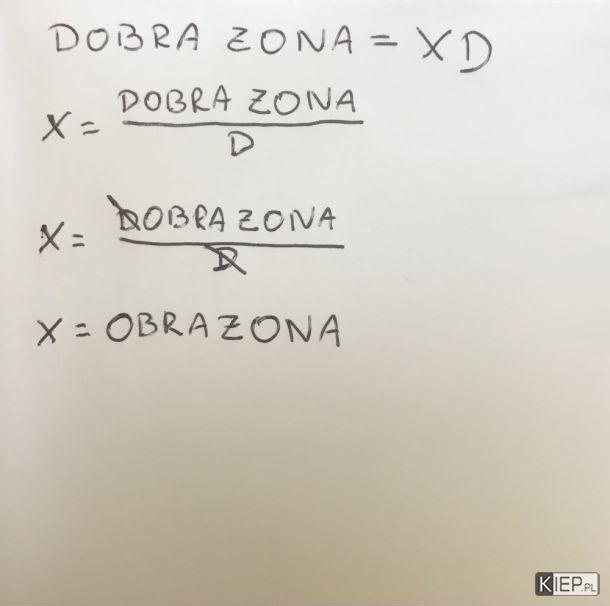 DOBRA ZONA = XD
X = DOBRA ZONA
D
X = DOBRA ZONA
D
X = OBRAZONA
KIEP.PL